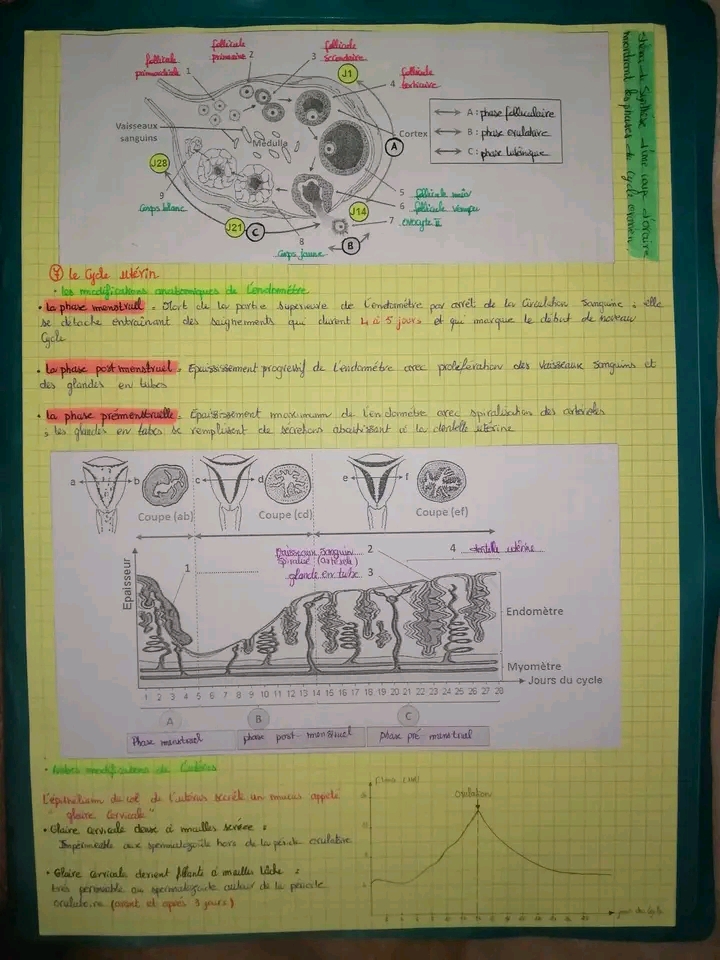 Schéma de Synthèse d'une coupe d'ovaire
montrant les phases du cycle ovarien
follicule
primordiale
follicule
primaire
follicule
secondaire
follicule
tertiaire
1
2
3
4
J1
Vaisseaux
sanguins
Médulla
Cortex
A
A : phase folliculaire
B : phase ovulatoire
C : phase lutéinique
J28
9
Corps blanc
J21
C
8
Corps jaune
J14
B
5 follicule mûr
6 follicule rompu
7 ovocyte II
le Cycle utérin
• les modifications anatomiques de l'endomètre
• la phase menstruel = Mort de la partie superieure de l'endomètre par arrêt de la Circulation Sanguine ; elle
se detache entrainant des saignements qui durent 4 à 5 jours et qui marque le début de nouveau
Cycle
• la phase post menstruel = Epaississement progressif de l'endomètre avec prolifération des Vaisseaux Sanguins et
des glandes en tubes
• la phase prémenstruelle = Epaississement maximum de l'endomètre avec spiralisation des artérioles
; les glandes en tubes se remplissent de secretions aboutissant à la dentelle utérine
a b c d e f
Coupe (ab) Coupe (cd) Coupe (ef)
Epaisseur
1
Vaisseaux Sanguin
Spiralé (artériole)
2
glande en tube
3
4 dentelle utérine
Endomètre
Myomètre
Jours du cycle
1 2 3 4 5 6 7 8 9 10 11 12 13 14 15 16 17 18 19 20 21 22 23 24 25 26 27 28
A B C
Phase menstruel phase post-menstruel phase pré menstrual
• Autres modifications de l'utérus
L'épithélium du col de l'utérus secrète un mucus appelé
"glaire Cervicale"
• Glaire cervicale dense à mailles serrée =
Imperméable aux spermatozoïde hors de la periode ovulatoire
• Glaire cervicale devient filante à mailles lâche =
très perméable au spermatozoïde autour de la periode
ovulatoire (avant et après 3 jours)
Ovulation
jour du Cycle